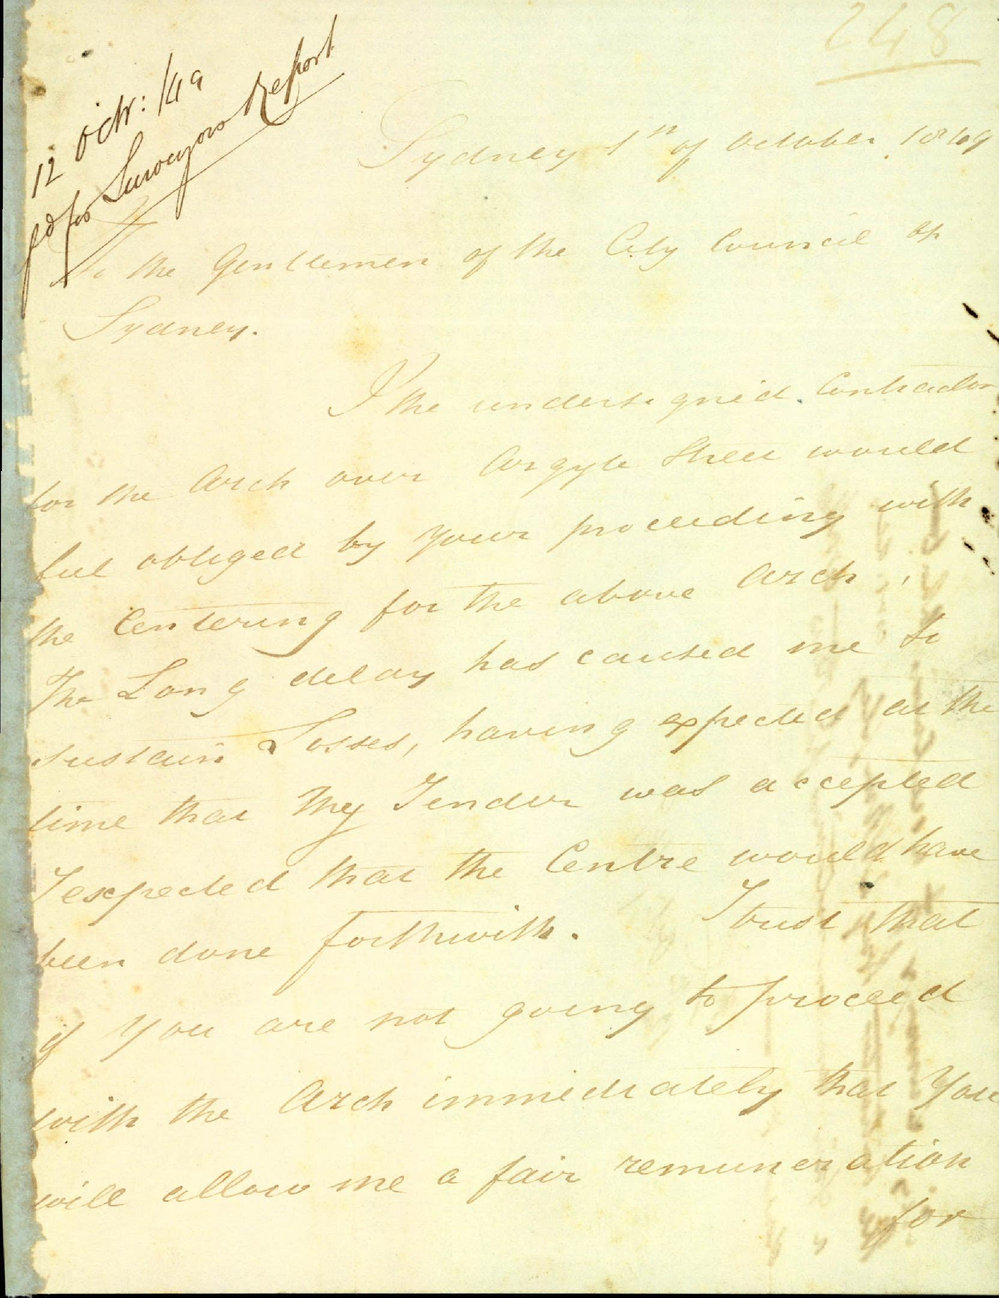 248
12 Octr: /49
pd for Surveyors Report
Sydney 1st of October 1849
To the Gentlemen of the City Council of
Sydney.
I the undersigned. Contractor
for the Arch over Argyle Street would
feel obliged by your proceeding with
the Centering for the above Arch,
The Long delay has caused me to
sustain Losses, having expected at the
time that My Tender was accepted
I expected that the Centre would have
been done forthwith. I trust that
if You are not going to proceed
with the Arch immediately that You
will allow me a fair remuneration
for